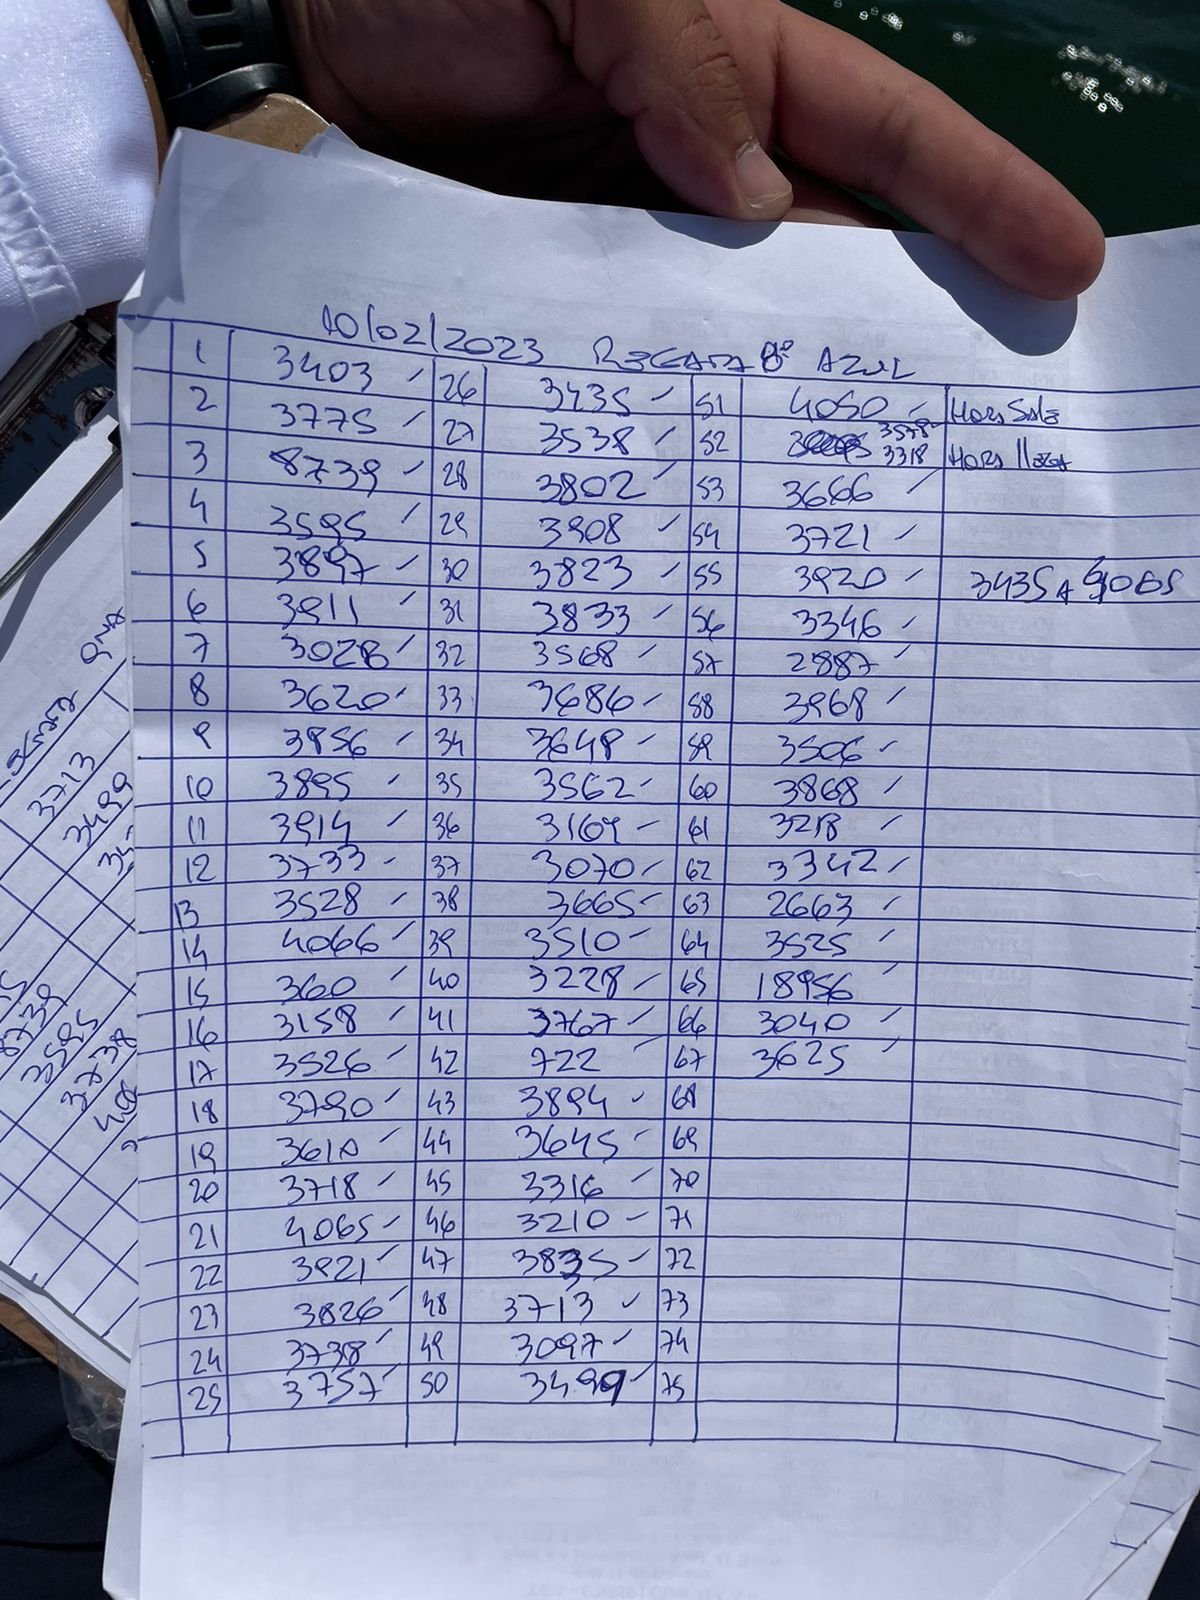 10/02/2023 REGATA 8º AZUL
1 3403 26 3435 51 4050 Hora Sale
2 3775 27 3538 52 3578 3318 Hora
3 8739 28 3802 53 3666
4 3595 29 3908 54 3721
5 3897 30 3823 55 3920 3435 A
6 3911 31 3833 56 3346
7 3028 32 3568 57 2887
8 3620 33 3686 58 3968
9 3856 34 3648 59 3506
10 3895 35 3562 60 3868
11 3914 36 3169 61 3218
12 3733 37 3070 62 3342
13 3528 38 3665 63 2663
14 4066 39 3510 64 3525
15 360 40 3228 65 18956
16 3158 41 3767 66 3040
17 3526 42 722 67 3625
18 3790 43 3894 68
19 3610 44 3645 69
20 3718 45 3316 70
21 4065 46 3210 71
22 3921 47 3835 72
23 3826 48 3713 73
24 3738 49 3097 74
25 3757 50 3499 75
3713
3499
8739
3595
3738